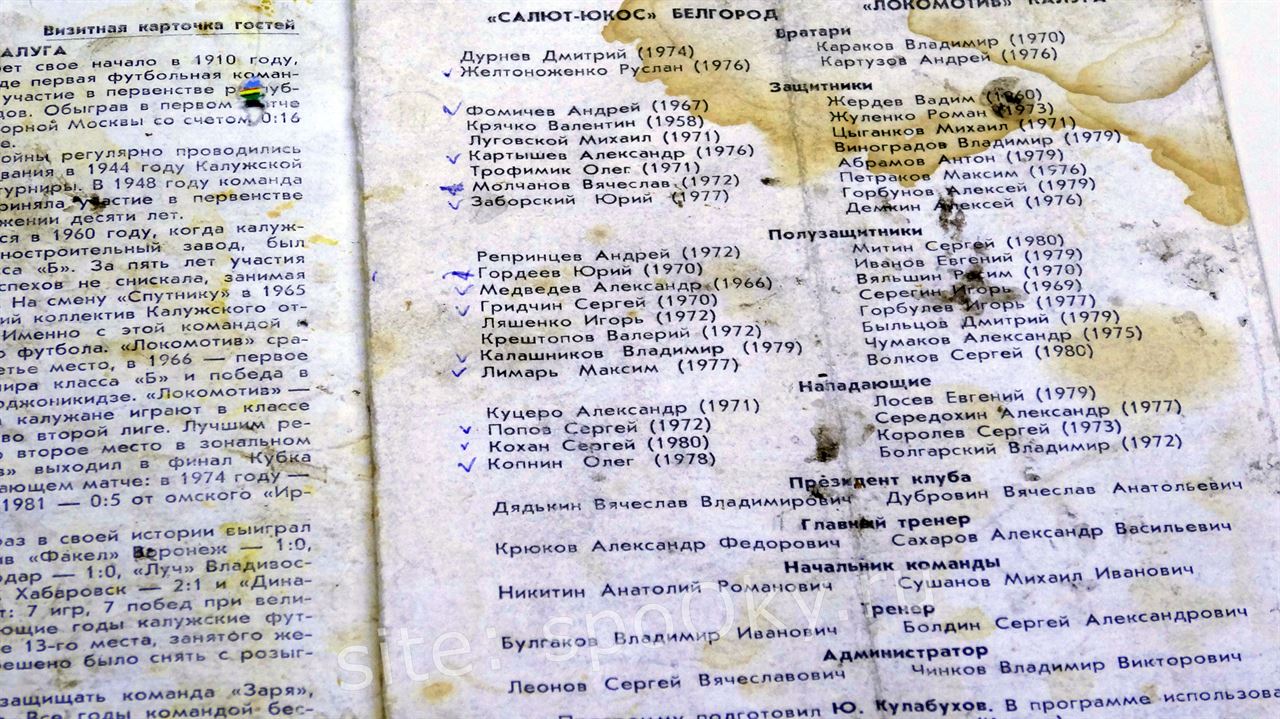 Визитная карточка гостей
АЛУГА
ет свое начало в 1910 году,
де первая футбольная коман-
участие в первенстве
дов. Обыграв в первом матче
орной Москвы со счетом 0:16
е.
ойны регулярно проводились
вания в 1944 году Калужской
турниры. В 1948 году команда
риняла участие в первенстве
жении десяти лет.
ся в 1960 году, когда калуж-
ностроительный завод, был
сса «Б». За пять лет участия
спехов не снискала, занимая
На смену «Спутнику» в 1965
ий коллектив Калужского от-
Именно с этой командой
о футбола. «Локомотив» сра-
етье место, в 1966 — первое
ира класса «Б» и победа в
рджоникидзе. «Локомотив» —
калужане играют в классе
во второй лиге. Лучшим ре-
о второе место в зональном
в» выходил в финал Кубка
ающем матче: в 1974 году —
1981 — 0:5 от омского «Ир-
раз в своей истории выиграл
ив «Факел» Воронеж — 1:0,
одар — 1:0, «Луч» Владивос-
Хабаровск — 2:1 и «Дина-
т: 7 игр, 7 побед при вели-
ющие годы калужские фут-
е 13-го места, занятого же-
решено было снять с розыг-
защищать команда «Заря»,
Все годы командой бес-
«САЛЮТ-ЮКОС» БЕЛГОРОД «ЛОКОМОТИВ» КАЛУГА
Вратари
Дурнев Дмитрий (1974) Караков Владимир (1970)
Желтоноженко Руслан (1976) Картузов Андрей (1976)
Защитники
Фомичев Андрей (1967) Жердев Вадим (1960)
Крячко Валентин (1958) Жуленко Роман (1973)
Луговской Михаил (1971) Цыганков Михаил (1971)
Картышев Александр (1976) Виноградов Владимир (1979)
Трофимик Олег (1971) Абрамов Антон (1979)
Молчанов Вячеслав (1972) Петраков Максим (1976)
Заборский Юрий (1977) Горбунов Алексей (1979)
Демкин Алексей (1976)
Полузащитники
Репринцев Андрей (1972) Митин Сергей (1980)
Гордеев Юрий (1970) Иванов Евгений (1979)
Медведев Александр (1966) Вяльшин Расим (1970)
Гридчин Сергей (1970) Серегин Игорь (1969)
Ляшенко Игорь (1972) Горбулев Игорь (1977)
Крештопов Валерий (1972) Быльцов Дмитрий (1979)
Калашников Владимир (1979) Чумаков Александр (1975)
Лимарь Максим (1977) Волков Сергей (1980)
Нападающие
Куцеро Александр (1971) Лосев Евгений (1979)
Попов Сергей (1972) Середохин Александр (1977)
Кохан Сергей (1980) Королев Сергей (1973)
Копнин Олег (1978) Болгарский Владимир (1972)
Президент клуба
Дядькин Вячеслав Владимирович Дубровин Вячеслав Анатольевич
Главный тренер
Крюков Александр Федорович Сахаров Александр Васильевич
Начальник команды
Никитин Анатолий Романович Сушанов Михаил Иванович
Тренер
Булгаков Владимир Иванович Болдин Сергей Александрович
Администратор
Леонов Сергей Вячеславович Чинков Владимир Викторович
Программу подготовил Ю. Кулабухов. В программе использова
site: spo0ky.ru